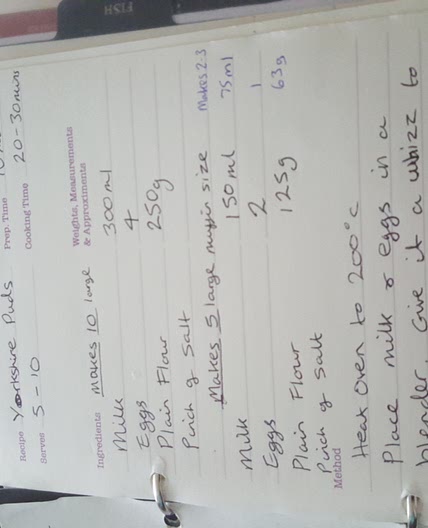 FISH
Recipe Yorkshire Puds
Prep. Time
Serves 5-10
Cooking Time 20-30mins
Ingredients makes 10 large
Weights, Measurements & Approximents
Milk 300ml
Eggs 4
Plain Flour 250g
Pinch of Salt
Makes 5 large muffin size Makes 2.3
Milk 150ml 75ml
Eggs 2 1
Plain Flour 125g 63g
Pinch of Salt
Method
Heat oven to 200°c
Place milk & eggs in a
blender. Give it a whizz to